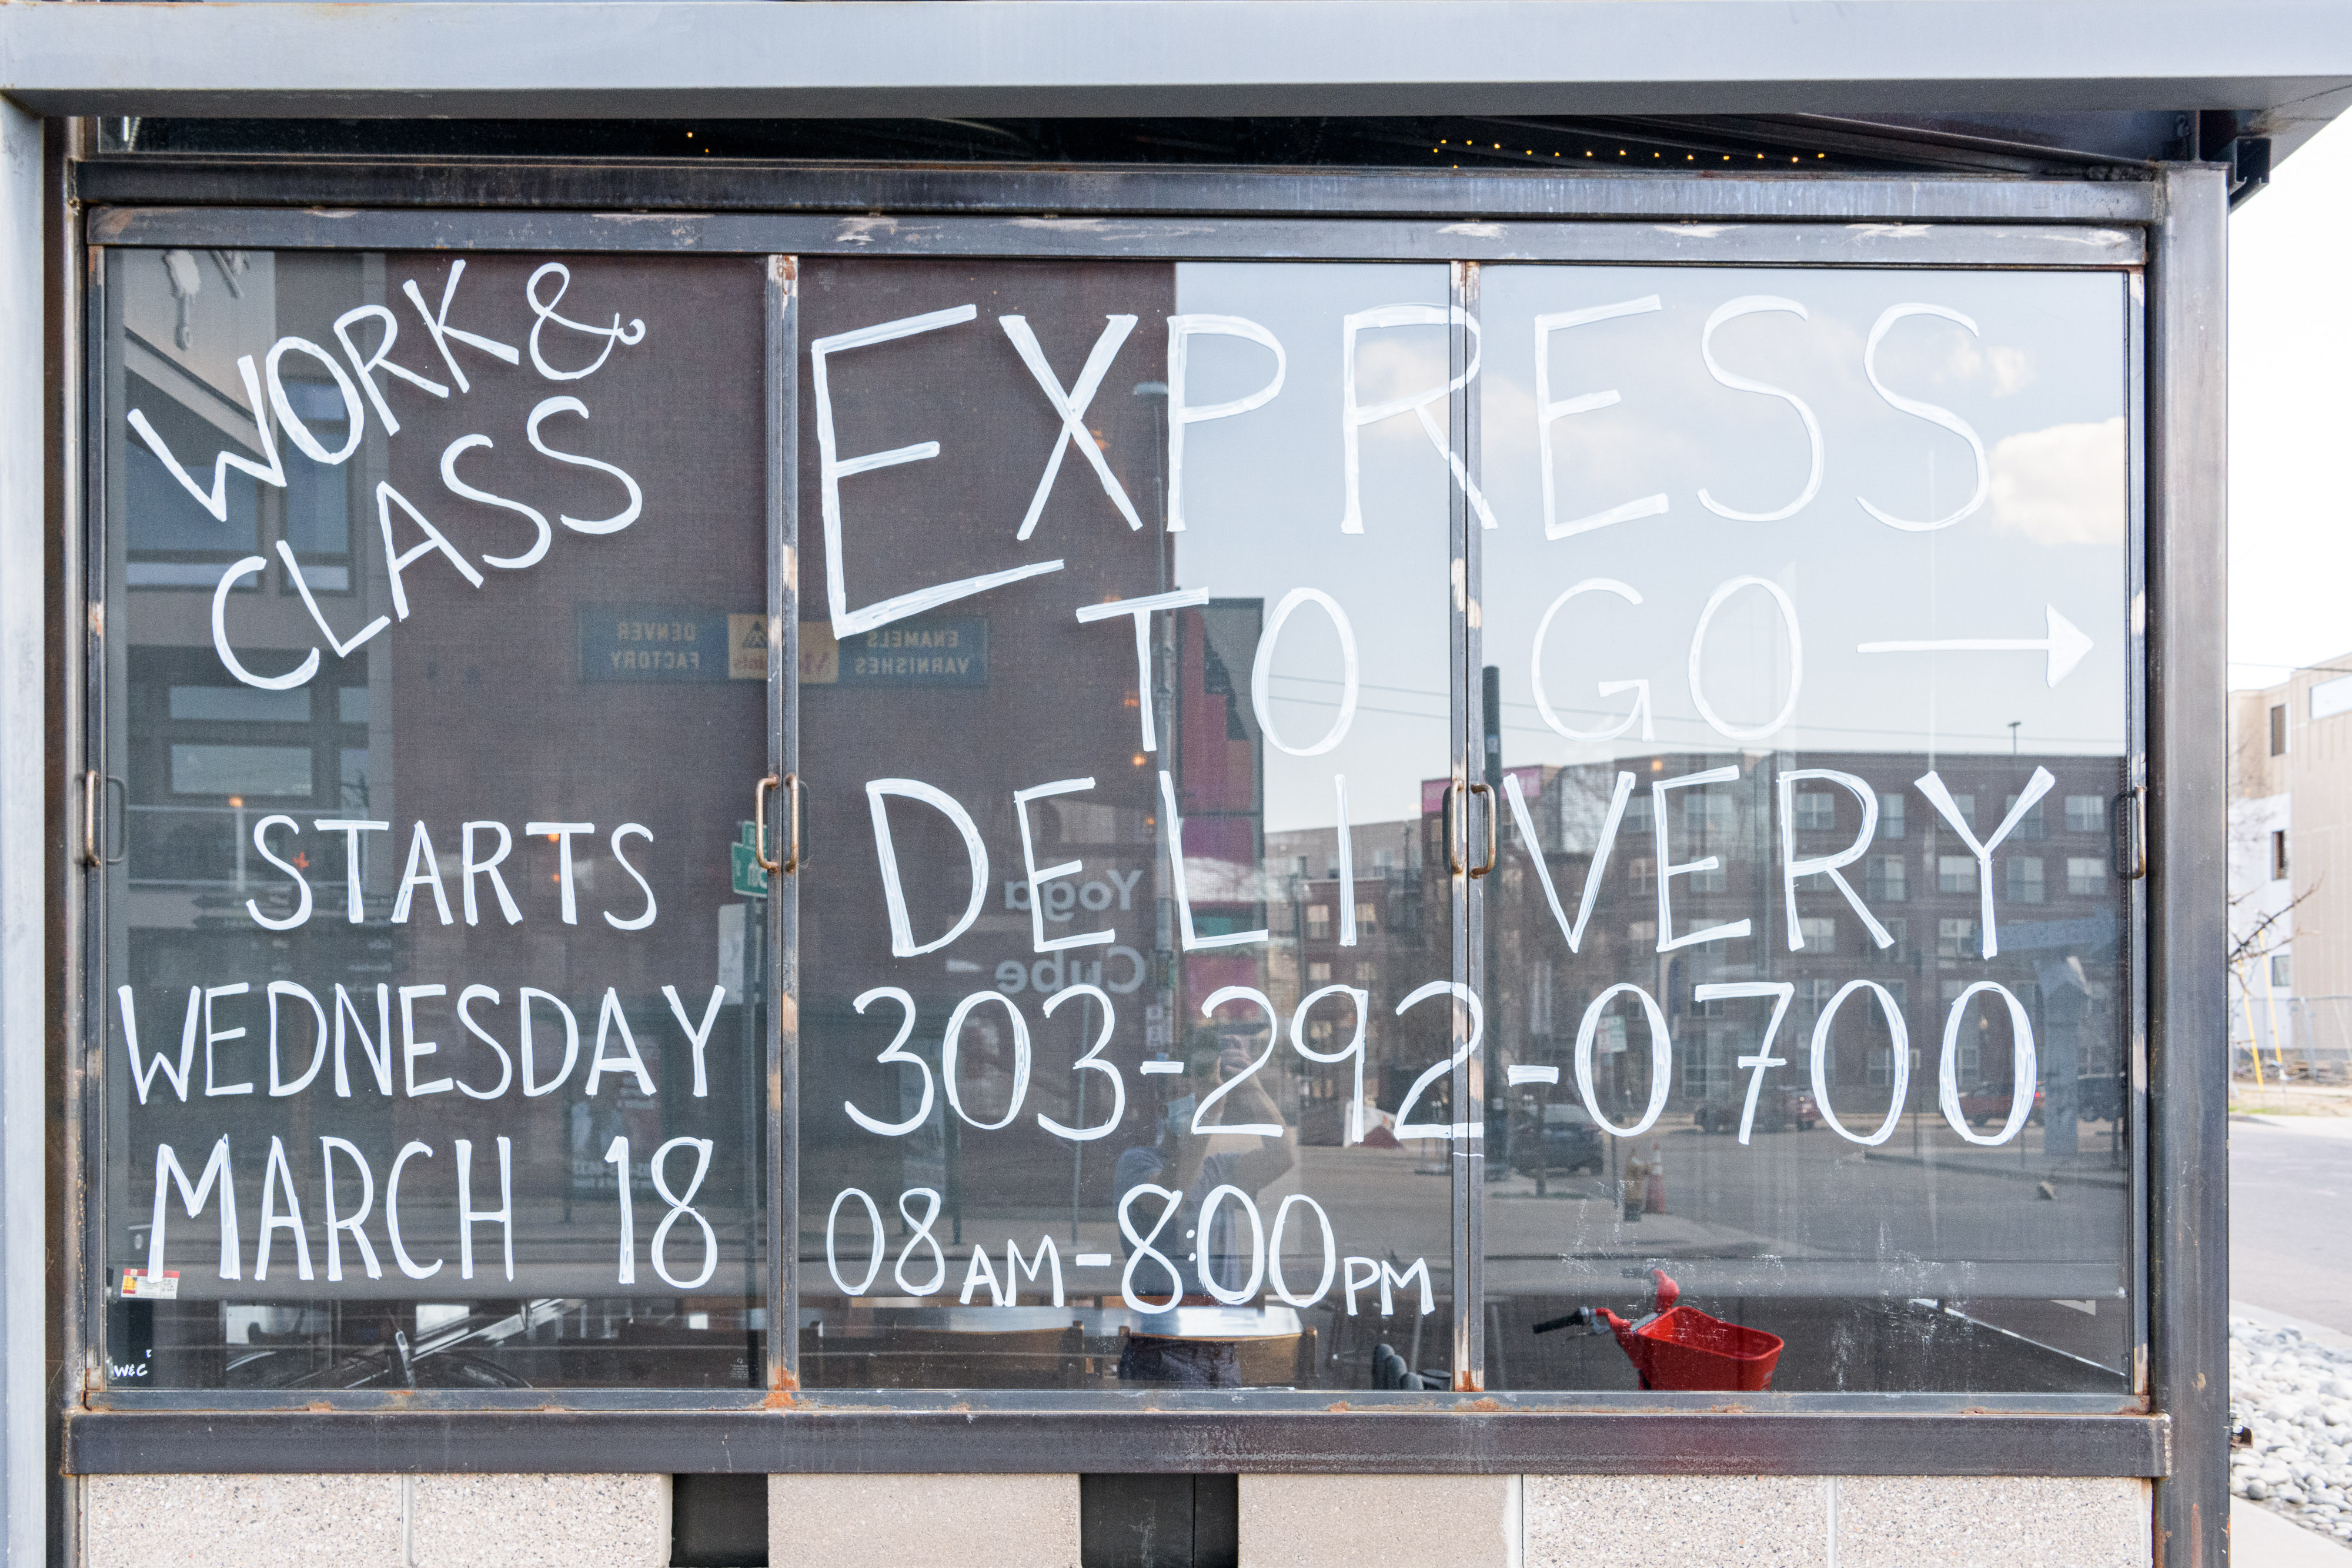 WORK &
CLASS
STARTS
WEDNESDAY
MARCH 18
EXPRESS
TO GO →
DELIVERY
303-292-0700
08AM-8:00PM
W&C
DENVER
FACTORY
ENAMELS
VARNISHES
Yoga
Cube